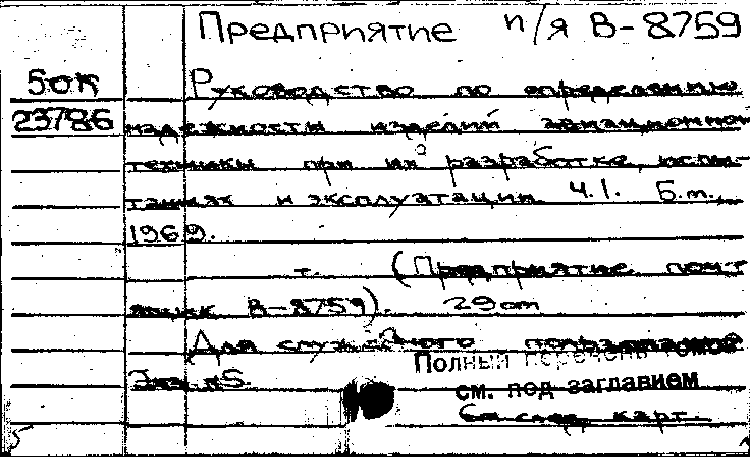 Предприятие п/я В-8759
50к
23786
Руководство по определению
надежности изделий авиационной
техники при их разработке, испы-
таниях и эксплуатации. Ч.1. Б.м.,
1969.
т. (Предприятие почт.
ящик В-8759). 29 cm
Для служебного пользования
Экз. №5.
Полный перечень томов
см. под заглавием
См. след. карт.